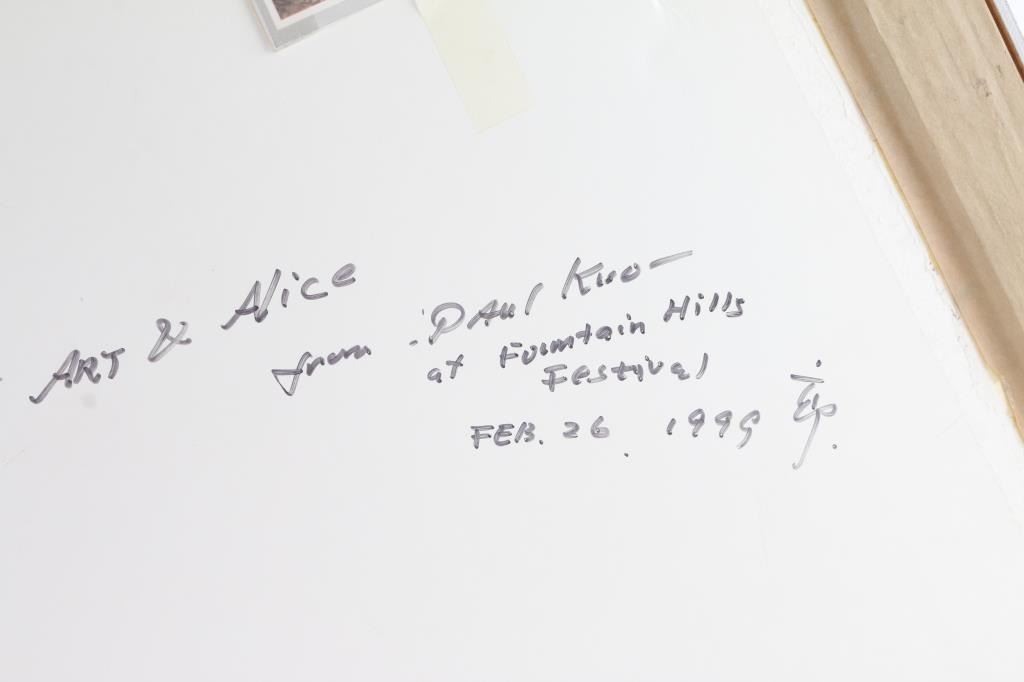 ART & Alice
from Paul Kuo
at Fountain Hills
Festival
FEB. 26. 1999 郭